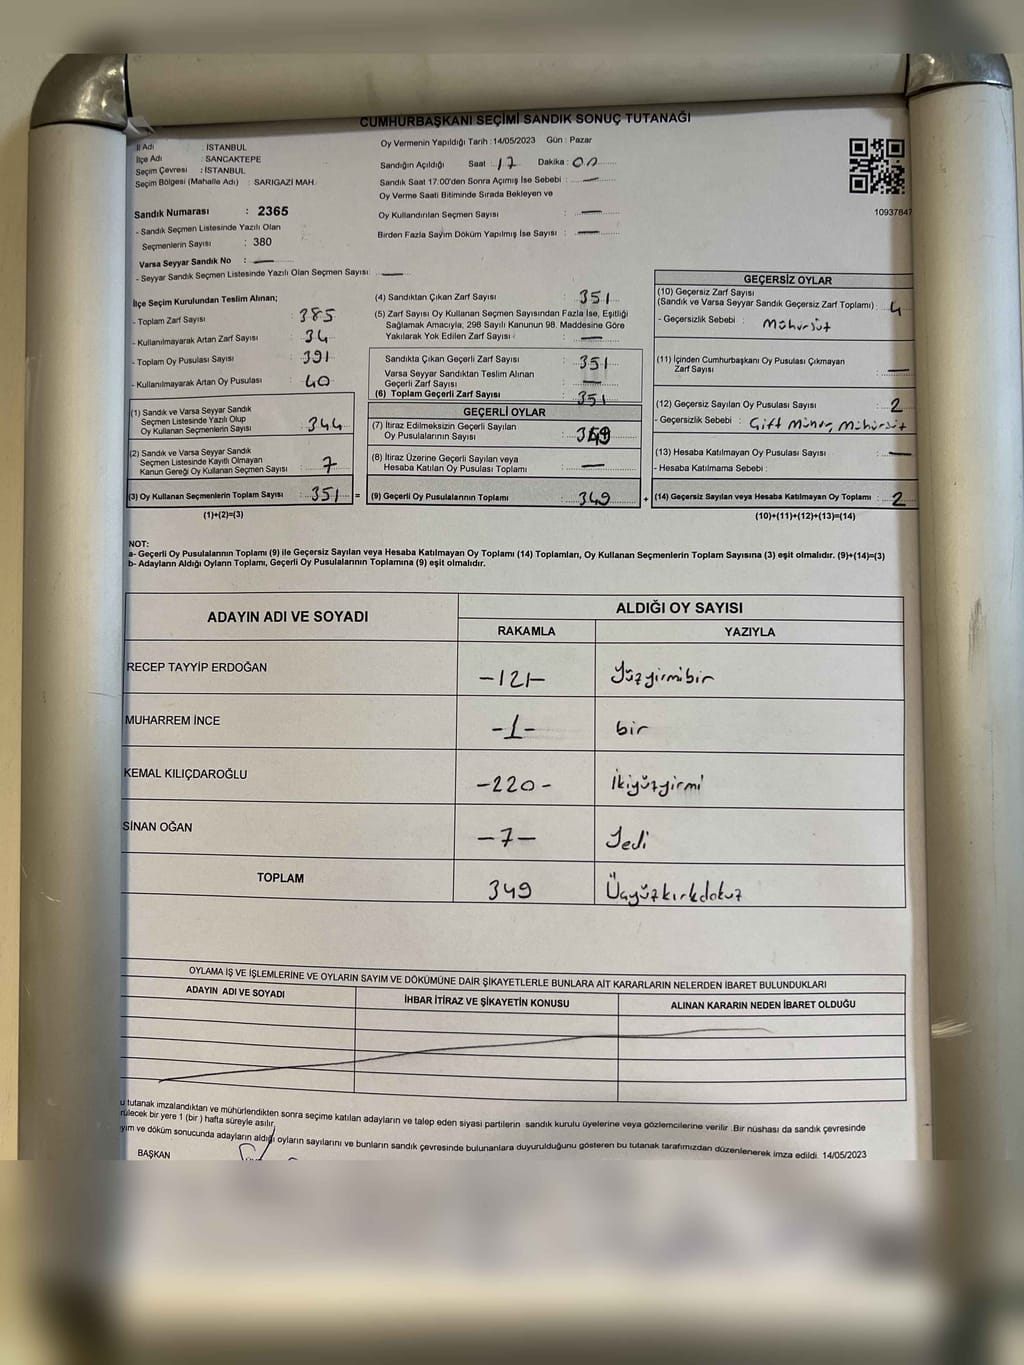 CUMHURBAŞKANI SEÇİMİ SANDIK SONUÇ TUTANAĞI
İl Adı : İSTANBUL
İlçe Adı : SANCAKTEPE
Seçim Çevresi : İSTANBUL
Seçim Bölgesi (Mahalle Adı) : SARIGAZİ MAH.
Sandık Numarası : 2365
- Sandık Seçmen Listesinde Yazılı Olan
Seçmenlerin Sayısı : 380
Varsa Seyyar Sandık No : —
- Seyyar Sandık Seçmen Listesinde Yazılı Olan Seçmen Sayısı : —
Oy Vermenin Yapıldığı Tarih : 14/05/2023 Gün : Pazar
Sandığın Açıldığı Saat : 17 Dakika : 00
Sandık Saat 17:00'den Sonra Açımış İse Sebebi : —
Oy Verme Saati Bitiminde Sırada Bekleyen ve
Oy Kullandırılan Seçmen Sayısı : —
Birden Fazla Sayım Döküm Yapılmış İse Sayısı : —
10937847
İlçe Seçim Kurulundan Teslim Alınan;
- Toplam Zarf Sayısı : 385
- Kullanılmayarak Artan Zarf Sayısı : 34
- Toplam Oy Pusulası Sayısı : 391
- Kullanılmayarak Artan Oy Pusulası : 40
(1) Sandık ve Varsa Seyyar Sandık
Seçmen Listesinde Yazılı Olup
Oy Kullanan Seçmenlerin Sayısı : 344
(2) Sandık ve Varsa Seyyar Sandık
Seçmen Listesinde Kayıtlı Olmayan
Kanun Gereği Oy Kullanan Seçmen Sayısı : 7
(3) Oy Kullanan Seçmenlerin Toplam Sayısı : 351 =
(1)+(2)=(3)
(4) Sandıktan Çıkan Zarf Sayısı : 351
(5) Zarf Sayısı Oy Kullanan Seçmen Sayısından Fazla İse, Eşitliği
Sağlamak Amacıyla, 298 Sayılı Kanunun 98. Maddesine Göre
Yakılarak Yok Edilen Zarf Sayısı : —
Sandıkta Çıkan Geçerli Zarf Sayısı : 351
Varsa Seyyar Sandıktan Teslim Alınan
Geçerli Zarf Sayısı : —
(6) Toplam Geçerli Zarf Sayısı : 351
GEÇERLİ OYLAR
(7) İtiraz Edilmeksizin Geçerli Sayılan
Oy Pusulalarının Sayısı : 349
(8) İtiraz Üzerine Geçerli Sayılan veya
Hesaba Katılan Oy Pusulası Toplamı : —
(9) Geçerli Oy Pusulalarının Toplamı : 349 +
GEÇERSİZ OYLAR
(10) Geçersiz Zarf Sayısı
(Sandık ve Varsa Seyyar Sandık Geçersiz Zarf Toplamı) : 4
- Geçersizlik Sebebi : Mühürsüt
(11) İçinden Cumhurbaşkanı Oy Pusulası Çıkmayan
Zarf Sayısı : —
(12) Geçersiz Sayılan Oy Pusulası Sayısı : 2
- Geçersizlik Sebebi : Çift Mühür, Mühürsüt
(13) Hesaba Katılmayan Oy Pusulası Sayısı : —
- Hesaba Katılmama Sebebi :
(14) Geçersiz Sayılan veya Hesaba Katılmayan Oy Toplamı : 2
(10)+(11)+(12)+(13)=(14)
NOT:
a- Geçerli Oy Pusulalarının Toplamı (9) ile Geçersiz Sayılan veya Hesaba Katılmayan Oy Toplamı (14) Toplamları, Oy Kullanan Seçmenlerin Toplam Sayısına (3) eşit olmalıdır. (9)+(14)=(3)
b- Adayların Aldığı Oyların Toplamı, Geçerli Oy Pusulalarının Toplamına (9) eşit olmalıdır.
ADAYIN ADI VE SOYADI ALDIĞI OY SAYISI
RAKAMLA YAZIYLA
RECEP TAYYİP ERDOĞAN -121- Yüzyirmibir
MUHARREM İNCE -1- bir
KEMAL KILIÇDAROĞLU -220- İkiyüzyirmi
SİNAN OĞAN -7- Yedi
TOPLAM 349 Üçyüzkırkdokuz
OYLAMA İŞ VE İŞLEMLERİNE VE OYLARIN SAYIM VE DÖKÜMÜNE DAİR ŞİKAYETLERLE BUNLARA AİT KARARLARIN NELERDEN İBARET BULUNDUKLARI
ADAYIN ADI VE SOYADI İHBAR İTİRAZ VE ŞİKAYETİN KONUSU ALINAN KARARIN NEDEN İBARET OLDUĞU
u tutanak imzalandıktan ve mühürlendikten sonra seçime katılan adayların ve talep eden siyasi partilerin sandık kurulu üyelerine veya gözlemcilerine verilir. Bir nüshası da sandık çevresinde
rülecek bir yere 1 (bir) hafta süreyle asılır.
yım ve döküm sonucunda adayların aldığı oyların sayılarını ve bunların sandık çevresinde bulunanlara duyurulduğunu gösteren bu tutanak tarafımızdan düzenlenerek imza edildi. 14/05/2023
BAŞKAN